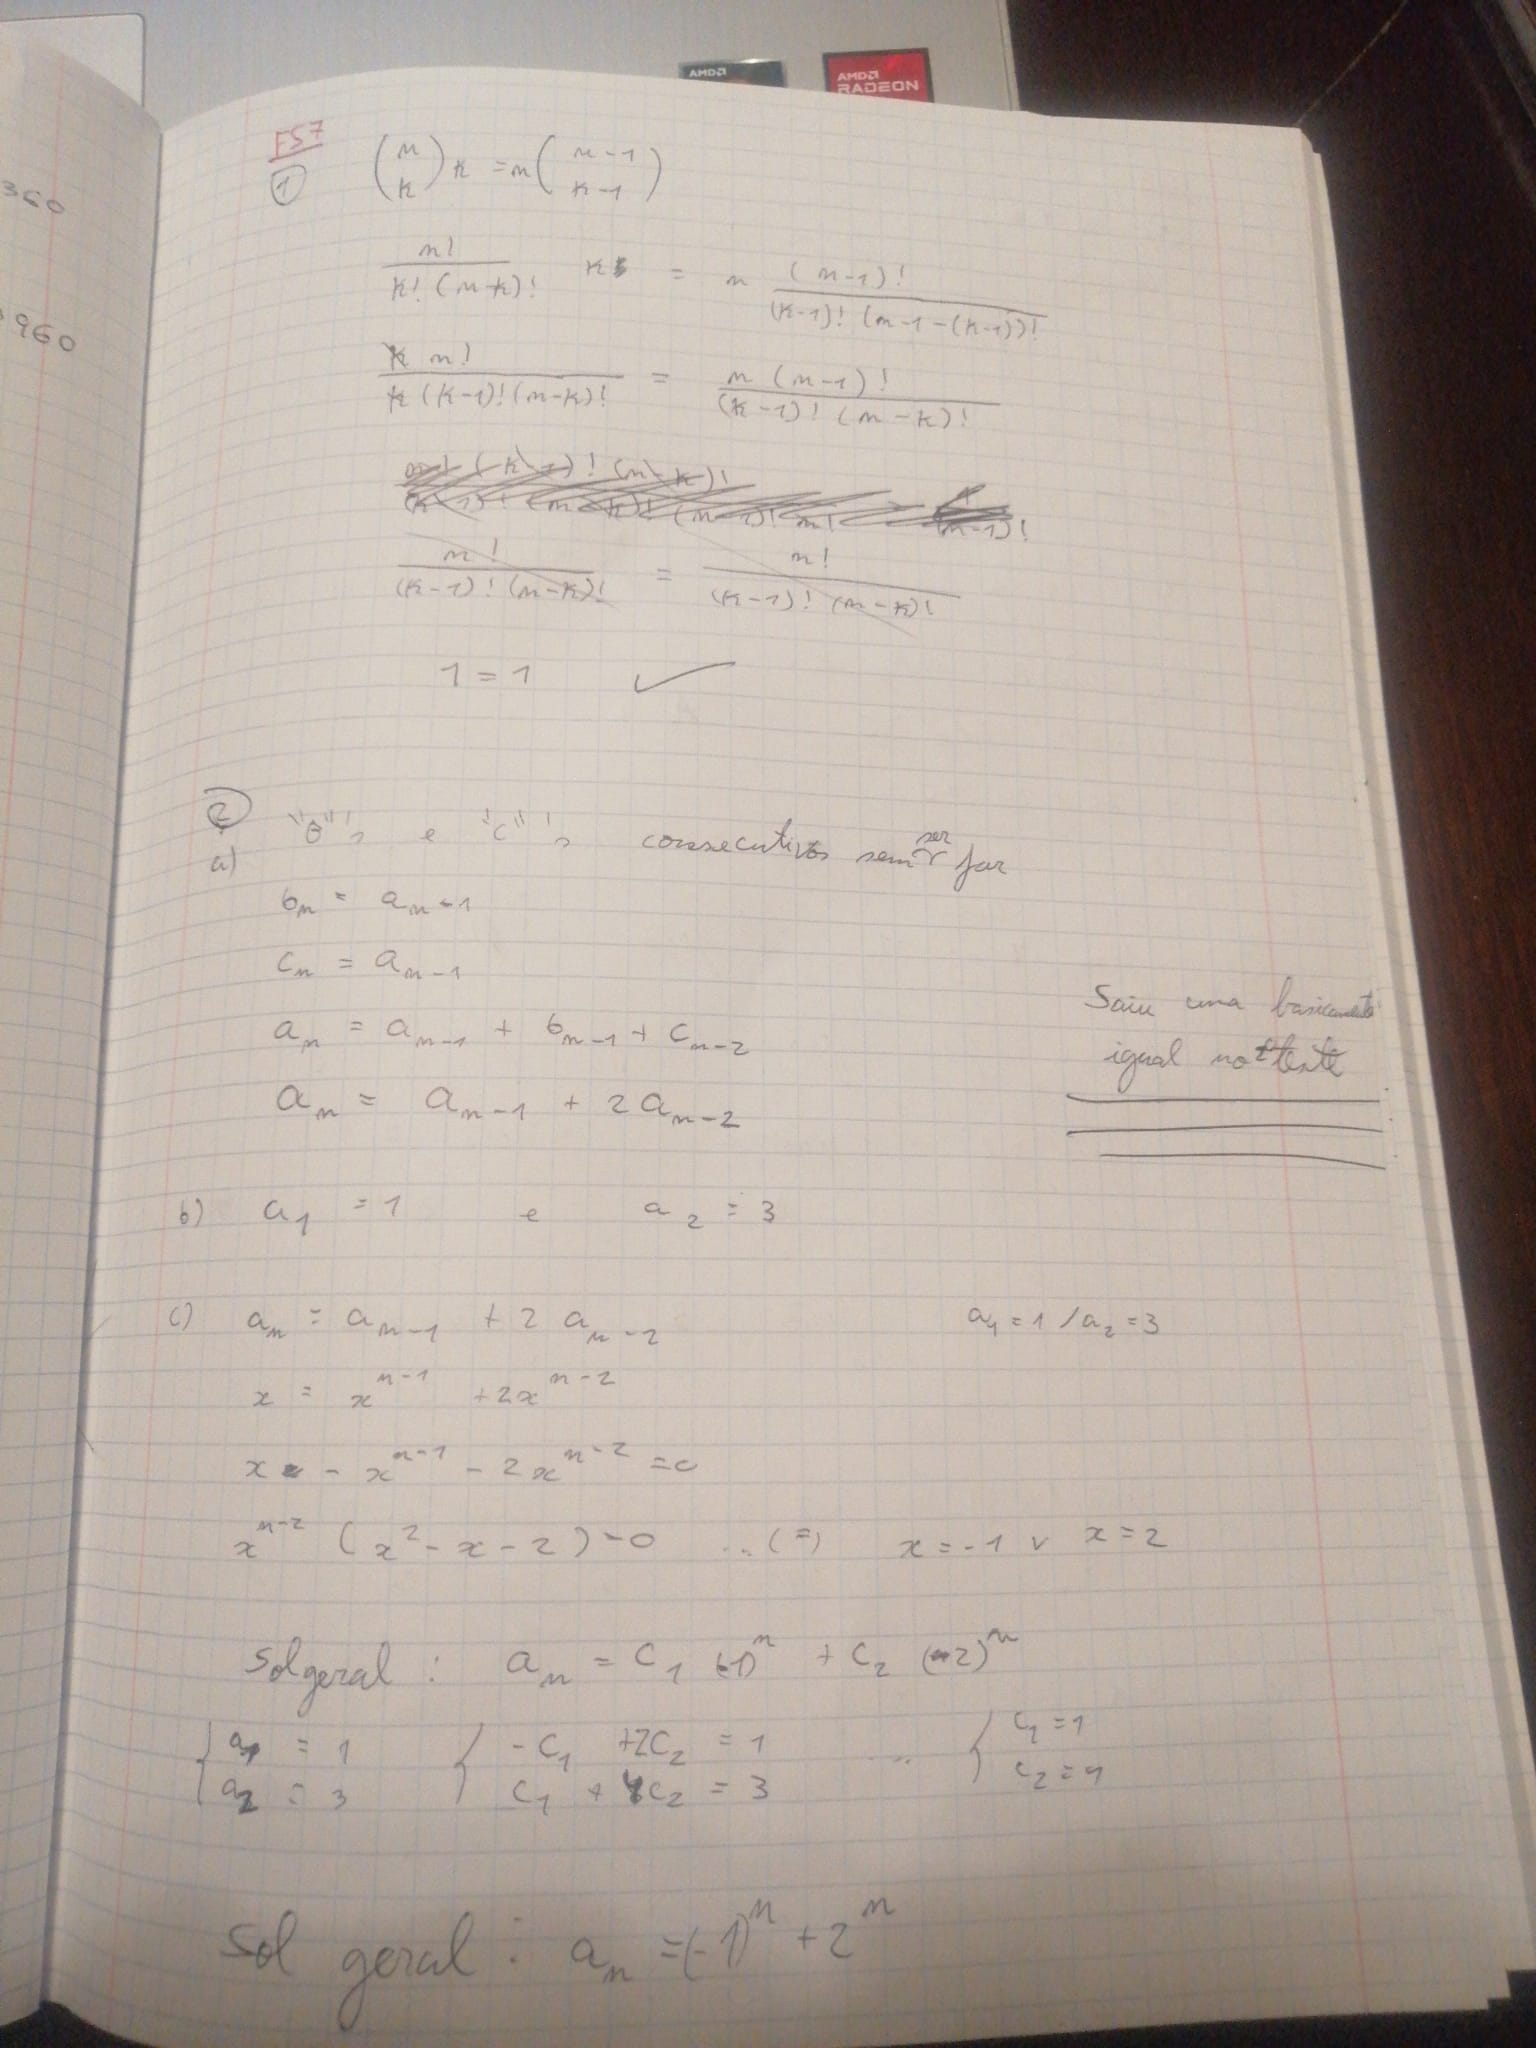 360
960
AMD
AMD
RADEON
FS7
① (n k) k = n (n-1 k-1)
n! / k! (n-k)! k = n (n-1)! / (k-1)! (n-1-(k-1))!
k n! / k (k-1)! (n-k)! = n (n-1)! / (k-1)! (n-k)!
n! / (k-1)! (n-k)! = n! / (k-1)! (n-k)!
1 = 1 ✓
②
a) "B"'s e "C"'s consecutivos sem ser par
b_n = a_n-1
c_n = a_n-1
a_n = a_n-1 + b_n-1 + c_n-2
a_n = a_n-1 + 2 a_n-2
Saiu uma basicamente
igual no 2º teste
b) a_1 = 1 e a_2 = 3
c) a_n = a_n-1 + 2 a_n-2 a_1 = 1 / a_2 = 3
x = x^n-1 + 2x^n-2
x - x^n-1 - 2x^n-2 = 0
x^n-2 (x^2 - x - 2) = 0 ... (=) x = -1 v x = 2
Sol geral : a_n = C_1 (-1)^n + C_2 (2)^n
{ a_1 = 1 { -C_1 + 2C_2 = 1 ... { C_1 = 1
a_2 = 3 C_1 + 4C_2 = 3 C_2 = 1
Sol geral : a_n = (-1)^n + 2^n